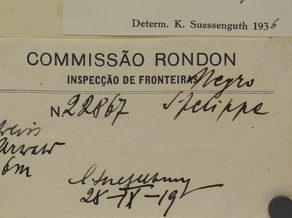 Determ. K. Suessenguth 1936
COMMISSÃO RONDON
INSPECÇÃO DE FRONTEIRAS
Negro
N. 22867 S. Felippe
6m
28-IX-19